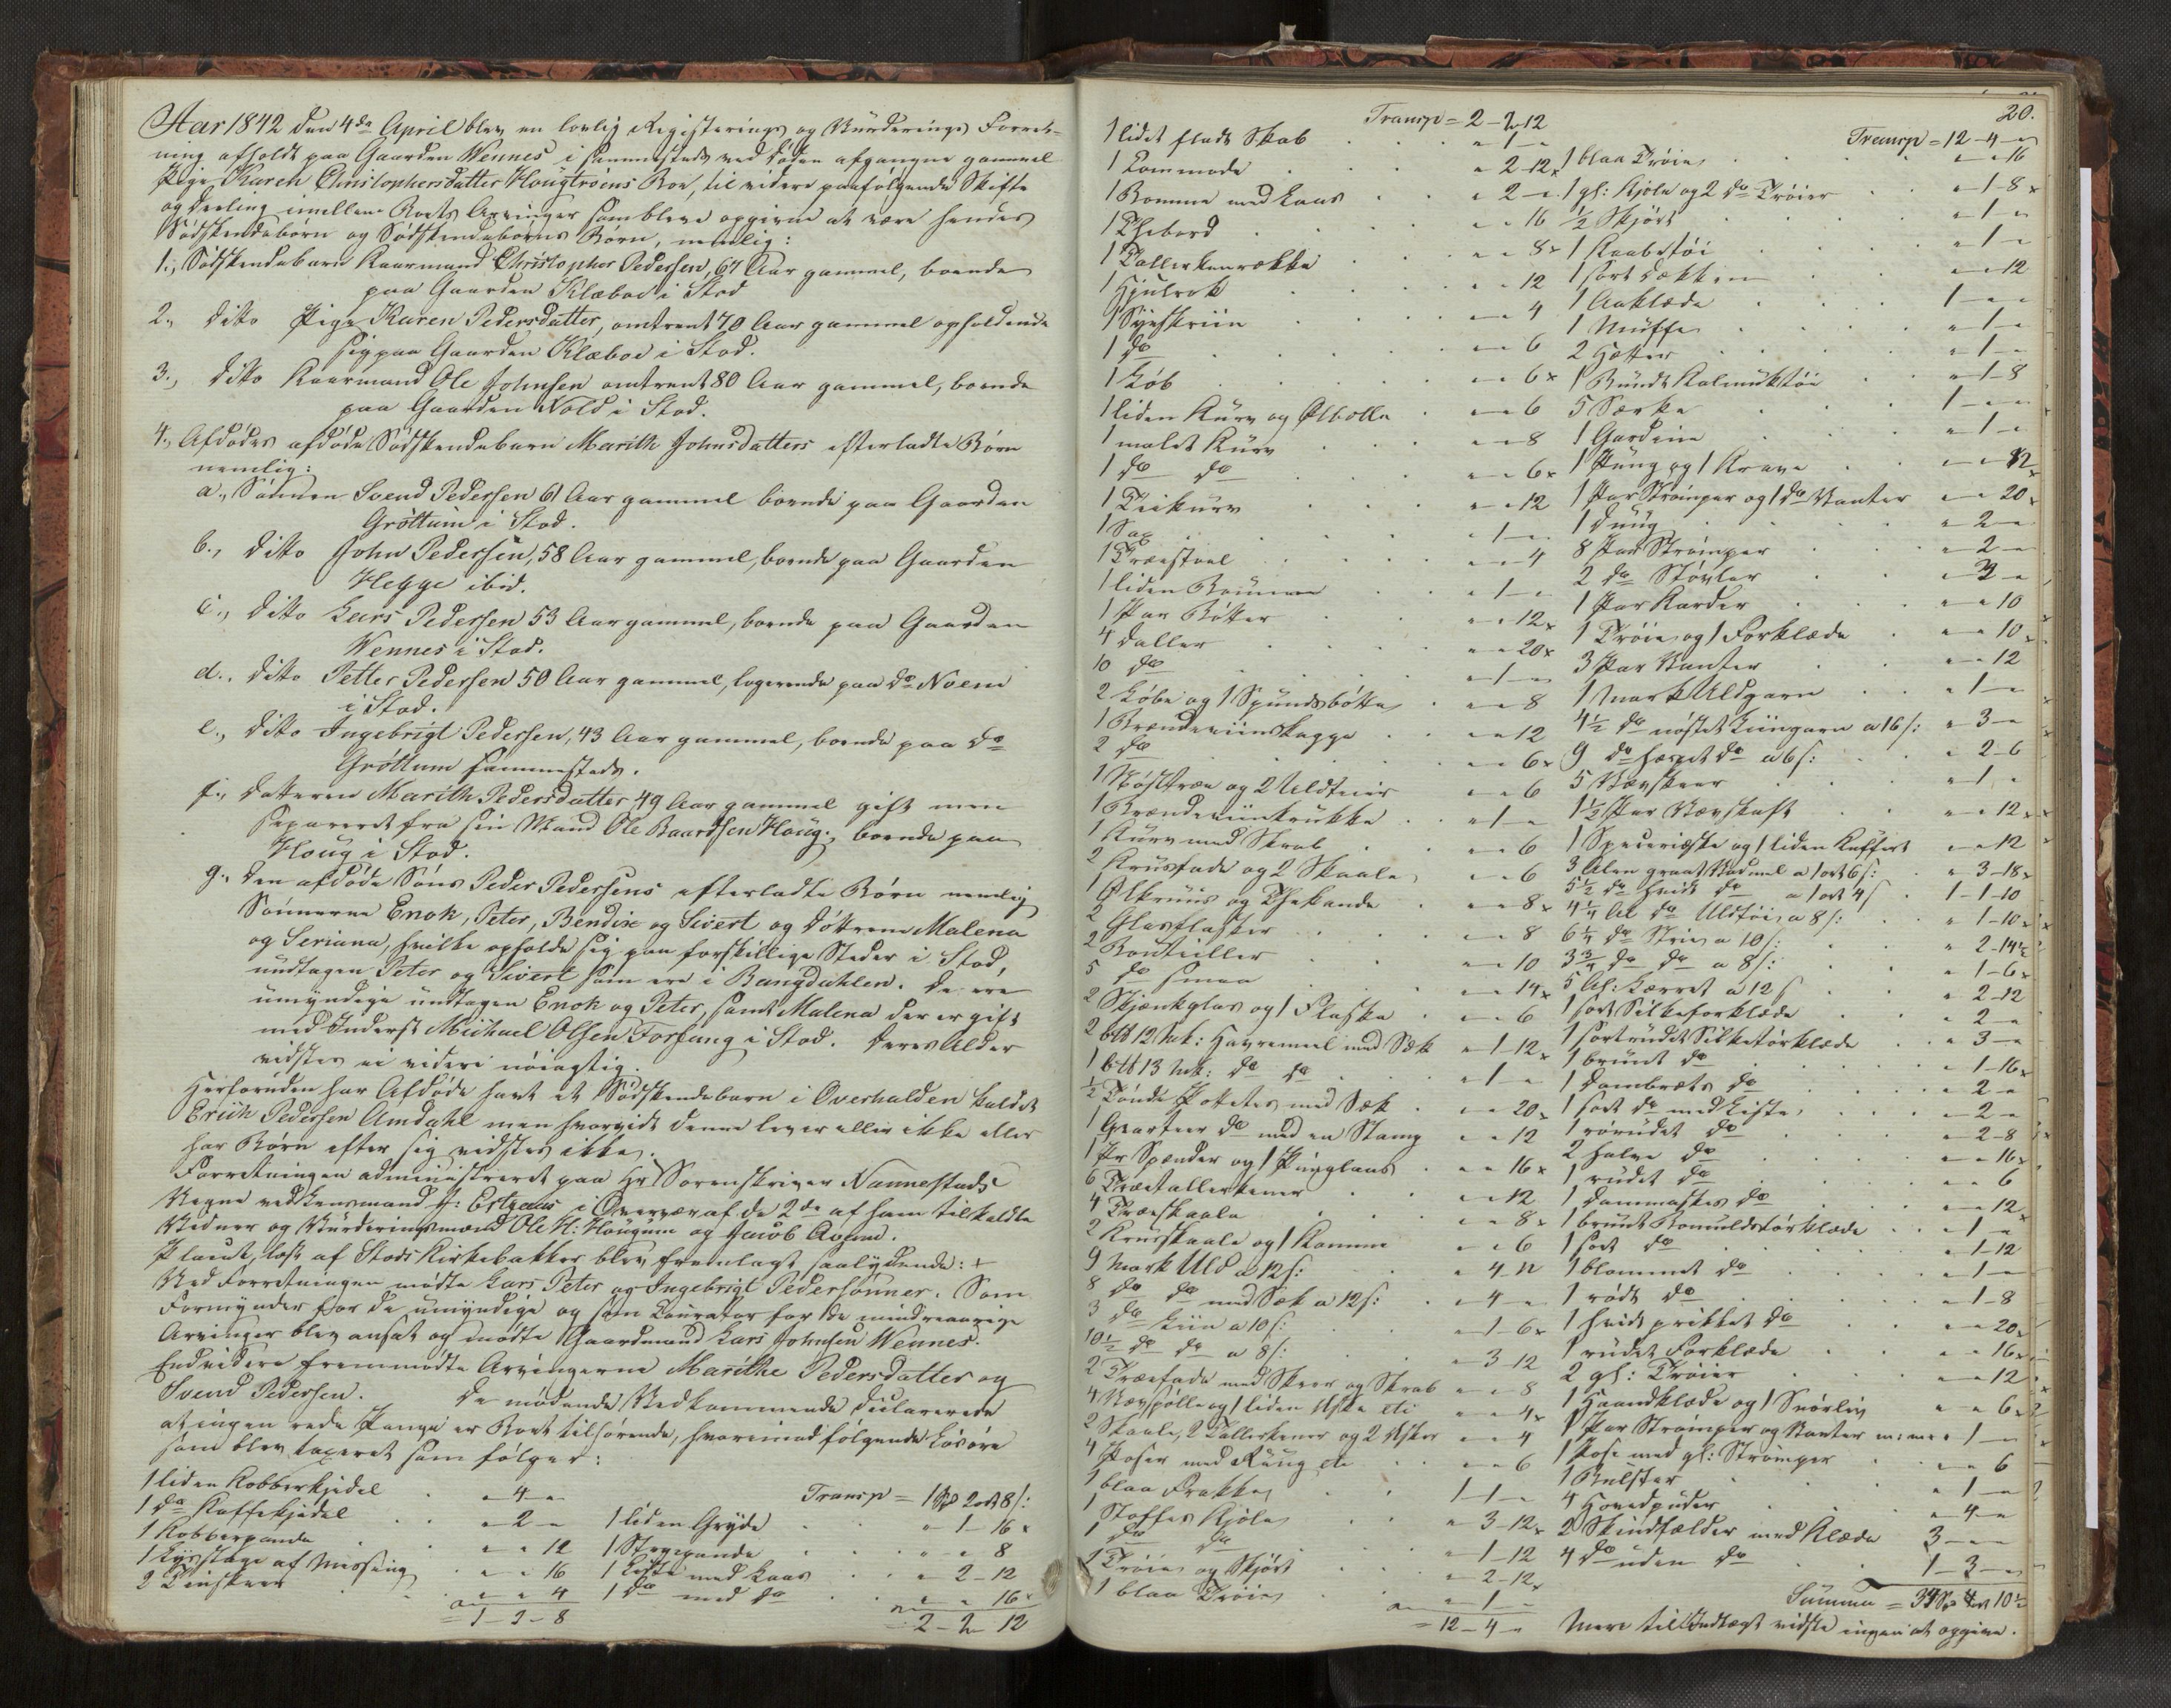 Aar 1842 den 4de April blev en lovlig Registerings og Vurderings Forret-
ning afholdt paa Gaarden Wennes i sammesteds ved Døden afgangne gammel
Pige Karen Christophersdatter Hougtrøens Boe, til videre paafølgende Skifte
og Deeling imellem Boets Arvinger som bleve opgivne at være hendes
Sødskendebørn og Sødskendebørns Børn, nemlig:
1., Sødskendebarn Kaarmand Christopher Pedersen, 67 Aar gammel, boende
paa Gaarden Klæboe i Stod
2., ditto Pige Karen Pedersdatter, omtrent 70 Aar gammel opholdende
sig paa Gaarden Klæboe i Stod.
3., ditto Kaarmand Ole Johnsen omtrent 80 Aar gammel, boende
paa Gaarden Vold i Stod.
4., Afdødes afdøde Sødskendebarn Marith Johnsdatters efterladte Børn
nemlig:
a., Sønnen Svend Pedersen 61 Aar gammel boende paa Gaarden
Grøttum i Stod.
b., ditto John Pedersen, 58 Aar gammel, boende paa Gaarden
Hegge ibid.
c., ditto Lars Pedersen 53 Aar gammel, boende paa Gaarden
Wennes i Stod.
d., ditto Petter Pedersen 50 Aar gammel, logerende paa do Noem
i Stod.
e., ditto Ingebrigt Pedersen, 43 Aar gammel, boende paa do
Grøttum sammesteds.
f., datteren Marith Pedersdatter, 49 Aar gammel gift men
separeret fra sin Mand Ole Baardsen Houg, boende paa
Houg i Stod.
g., den afdøde Søns Peder Pedersens efterladte Børn nemlig
Sønnerne Enok, Peter, Bendix og Sivert og døttrene Malena
og Seriana, hvilke opholde sig paa forskillige Steder i Stod,
undtagen Peter og Sivert som ere i Bangdahlen. De ere
umyndige undtagen Enok og Peter, samt Malena der er gift
med Inderst Michael Olsen Forfang i Stod. Deres Alder
vidstes ei videre nøiagtig.
Herforuden har Afdøde havt et Sødskendebarn i Overhalden kaldet
Erich Pedersen Amdahl men hvorvidt denne lever eller ikke eller
har Børn efter sig vidstes ikke.
Forretningen administreret paa Hr Sorenskriver Nannestads
Vegne ved Lensmand J: Estzaus i Overvær af de 2de af ham tilkaldte
Vidner og Vurderingsmænd Ole H: Hougum og Jacob
Placat, læst af Stods Kirkebakker blev fremlagt saalydende: +
Ved Forretningen mødte Lars, Peter og Ingebrigt Pedersønner. Som
Formynder for de umyndige og som Courator for de mindreaarige
Arvinger blev ansat og mødte Gaardmand Lars Johnsen Wennes.
Endvidere fremmødte Arvingerne Marithe Pedersdatter og
Svend Pedersen. De mødende Vedkommende declarerede
at ingen rede Penge er Boet tilhørende, hvorimod følgende Løsøre
som blev taxeret som følger:
1 liden Kobberkjedel . " 4 "
1 do Kaffekjedel . . " 2 "
1 Kobberpande . . " " 12
1 Lysestage af Messing . " " 16
2 Tinskeer . . " " 4
= 1 - 2 - 8
Transp = 1 Spd 2 ort 8 s:
1 liden Gryde . . " 1 - 16 x
1 Stegepande . . " " 8
1 Kiste med Laas . . " 2 - 12
1 do med do . . " " 16 x
= 2 - 2 12
Transp = 2 - 2 12
1 lidet fladt Skab . . " 1 "
1 Commode . . " 2 - 12 x
1 Bomme med Laas . . " 2 "
1 Thebord . . " " 16
1 Tallerkenrække . . " " 8 x
1 Hjulrok . . " " 12
1 Syeskriin . . " " 4
1 do . . " " 6
1 Løb . . " " 6 x
1 liden Kurv og Ølbolle . " " 6
1 malet Kurv . . " " 8
1 do do . . " " 6 x
1 Teikurv . . " " 12
1 Sax . . " 1 "
1 Træestoel . . " " 4
1 liden Bomme . . " 1 "
1 Par Bøtter . . " " 12 x
4 Daller . . " " 20 x
10 do . . " 1 "
2 Løbe og 1 Spundsbøtte . " " 8
1 Brændeviinskagge . . " " 12
2 do . . " " 6 x
1 og 2 Uldteier " " 6
1 Brændeviinkrukke . . " 1 "
1 Kurv med Skrab . . " " 6
2 Kruusfade og 2 Skaale . " " 6
1 Ølkruus og Thekande . " " 8 x
2 Glasflasker . . " " 8
2 Bouteiller . . " " 10
5 do smaa . . " " 14 x
2 Skjænkglas og 1 Flaske . " " 6
2 12 Mk: Havremeel med Sæk " 1 - 12 x
1 13 Mk: do do . " 1 "
½ Tønde Poteter med Sæk . " " 20 x
1 Qvarteer do med en Stamp " " 12
1 Pr Spænder og 1 Pung " " 16 x
6 Træetallerkener . . " " 12
4 Træeskaale . . " " 8 x
2 Kruusskaale og 1 Komme " " 6
9 Mark Uld a 12 s: . " 4 - 12
8 do do med Sæk a 12 s: . " 4 "
3 do Liin a 10 s: . . " 1 - 6 x
10½ do do a 8 s: . . " 3 - 12
2 Træefade med Skeer og Skrab " " 8
4 og 1 liden Æske etc " " 4 x
2 Skaale, 2 Tallerkener og 2 Æsker " " 4
4 Poser med Rüng etc . . " " 6
1 blaa Frakke . . 1 - 1 "
1 Stoffes Kjole . . " 3 - 12 x
1 do do . . " 1 - 12
1 Trøie og Skjørt . . " 2 - 12 x
1 blaa Trøie . . " 1 "
= 12 - 4 "
20.
Transp = 12 - 4 "
1 blaa Trøie . . " " 16
1 gl: Kjole og 2 do Trøier . . " 1 - 8 x
½ Skjørt . . " 1 "
1 Kaabetøi . . " 1 "
1 sort . . " " 12
1 Aaklæde . . 1 " "
1 Muffe . . " 1 "
2 Hætter . . " 1 "
1 Bundt Kalmuktøi . . " 1 - 8
5 Særke . . 1 " "
1 Gardin . . " 1 "
1 Pung og 1 Krave . . " " 12 x
1 Par Strømper og 1 do Vanter " " 20 x
1 Duug . . " 2 "
8 Par Strømper . . " 2 "
2 do Støvler . . " 2 "
1 Par Karder . . " " 10
1 Trøie og 1 Forklæde . " " 10 x
3 Par Vanter . . " " 12
1 Mark Uldgarn . . " 1 "
4½ do nøstet Liingarn a 16 s: " 3 "
9 do hæspet do a 6 s: . . " 2 - 6
5 Vævskeer . . " 1 "
1½ Par Vævskaft . . " " 12 x
1 og 1 liden Kuffert " " 12
3 Alen graat Vadmel a 1 ort 6 s: . " 3 - 18 x
5½ do hvidt do a 1 ort 4 s 1 - 1 - 10
4¼ Al do Uldtøi a 8 s: . . " 1 - 10 x
6¼ do Strie a 10 s: . . " 2 - 14½
3¾ do do a 8 s: . . " 1 - 6 x
5 Al: Lærret a 12 s . . " 2 - 12
1 sort Silkeforklæde . . " 2 "
1 sortrudet Silketørklæde . . " 3 "
1 bruunt do . . " 1 - 16 x
1 dambrets do . . " 2 "
1 sort do med Liste . . " 2 "
1 rørudet do . . " 2 - 8
2 halve do . . " " 16 x
1 rudet do . . " " 6
1 dammaskes do . . " " 12 x
1 bruunt Bomuldstørklæde . . " 1 "
1 sort do . . " 1 - 12
1 blommet do . . " 1 "
1 rødt do . . " 1 - 8
1 hvidt prikket do . . " " 20 x
1 rudet Forklæde . . " " 16 x
2 gl: Trøier . . " " 12
1 Haandklæde og 1 Snørliv " " 6 x
1 Par Strømper og Vanter m: m: " 1 "
1 Pose med gl: Strømper . . " " 6
1 Bulster . . " 1 "
4 Hovedpuder . . " 4 "
2 Skindfælder med Klæde 3 " "
4 do uden do . . 1 - 3 "
Summa = 34 Spd 4 ort 10½
Mere til Indtægt vidste ingen at opgive.